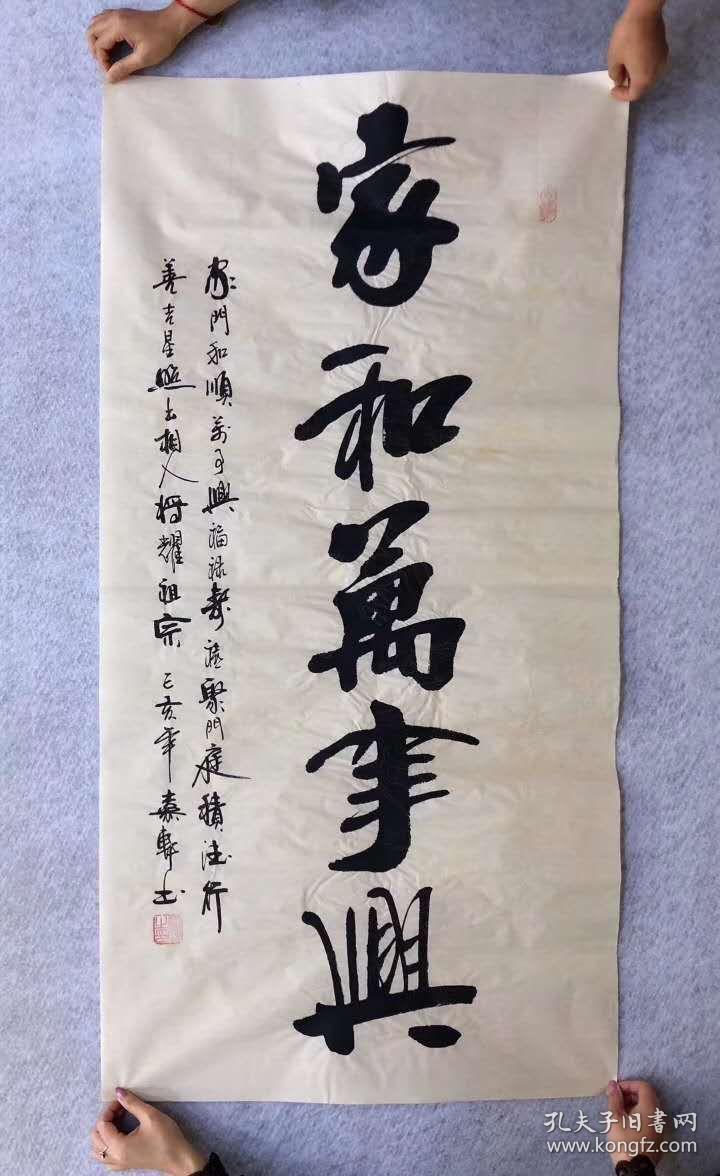 家和萬事興
家門和順萬事興福禄壽禧聚門庭積德行
善吉星照出相入將耀祖宗己亥年嘉軒书
孔夫子旧書网
www.kongfz.com